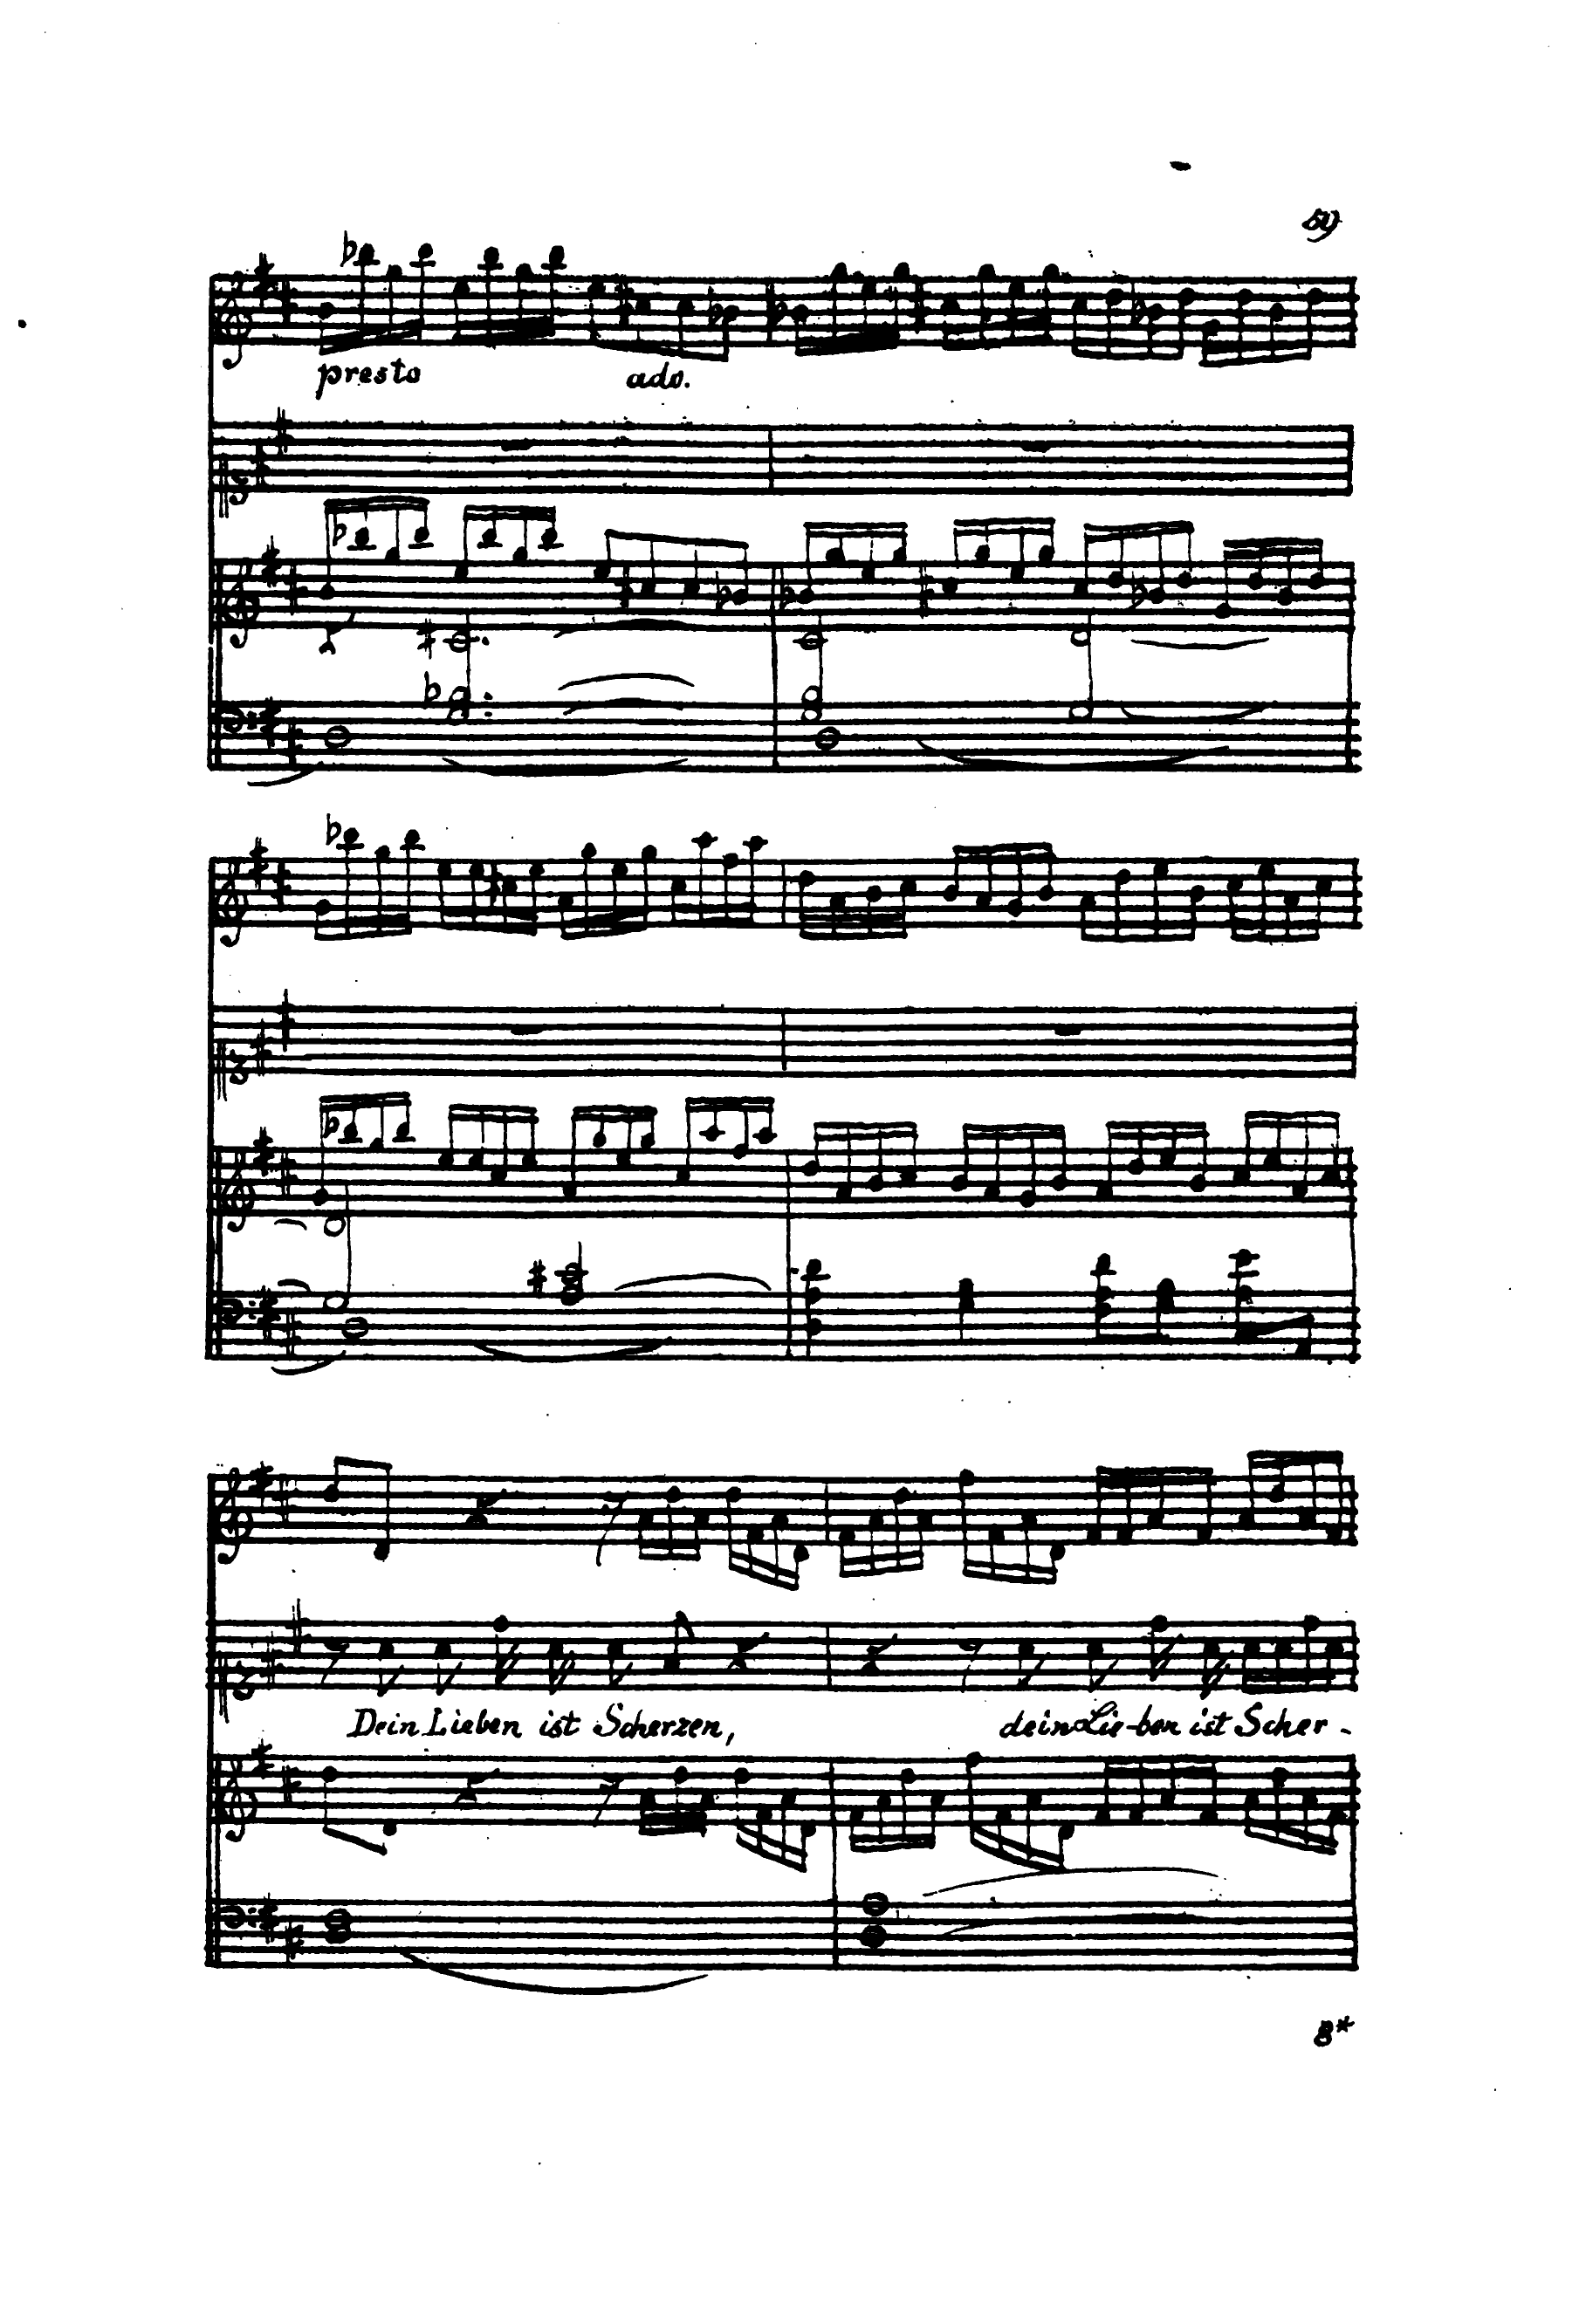 59
presto ado.
Dein Lieben ist Scherzen, dein Lie-ben ist Scher-
8*